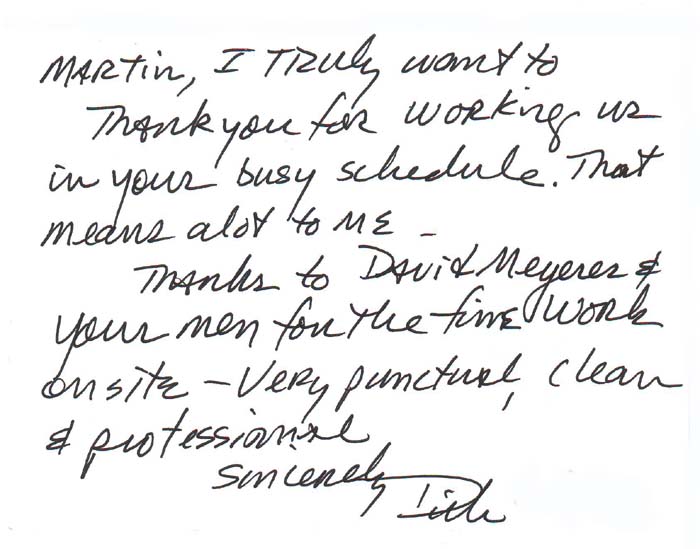 Martin, I Truly want to
Thank you for working us
in your busy schedule. That
means alot to me -
Thanks to David Meyeres &
your men for the fine work
onsite - Very punctual, clean
& professional
Sincerely Dick